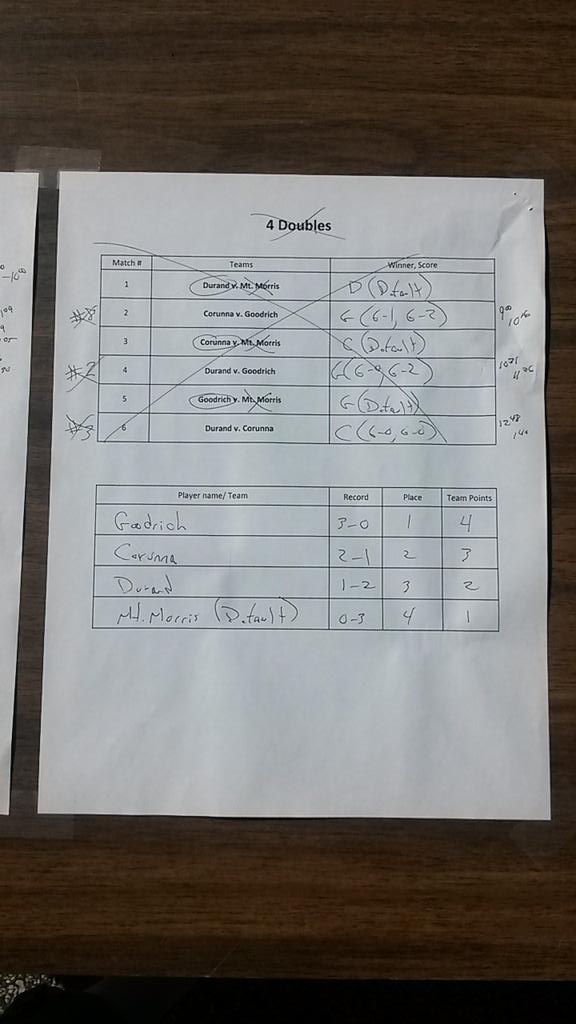 4 Doubles
Match # Teams Winner, Score
1 Durand v. Mt. Morris D (Default)
2 Corunna v. Goodrich G (6-1, 6-2) 9:00
3 Corunna v. Mt. Morris C (Default)
#2 4 Durand v. Goodrich G(6-0, 6-2)
5 Goodrich v. Mt. Morris G (Default)
#3 6 Durand v. Corunna C (6-0, 6-0) 12:48
Player name/ Team Record Place Team Points
Goodrich 3-0 1 4
Corunna 2-1 2 3
Durand 1-2 3 2
Mt. Morris (Default) 0-3 4 1